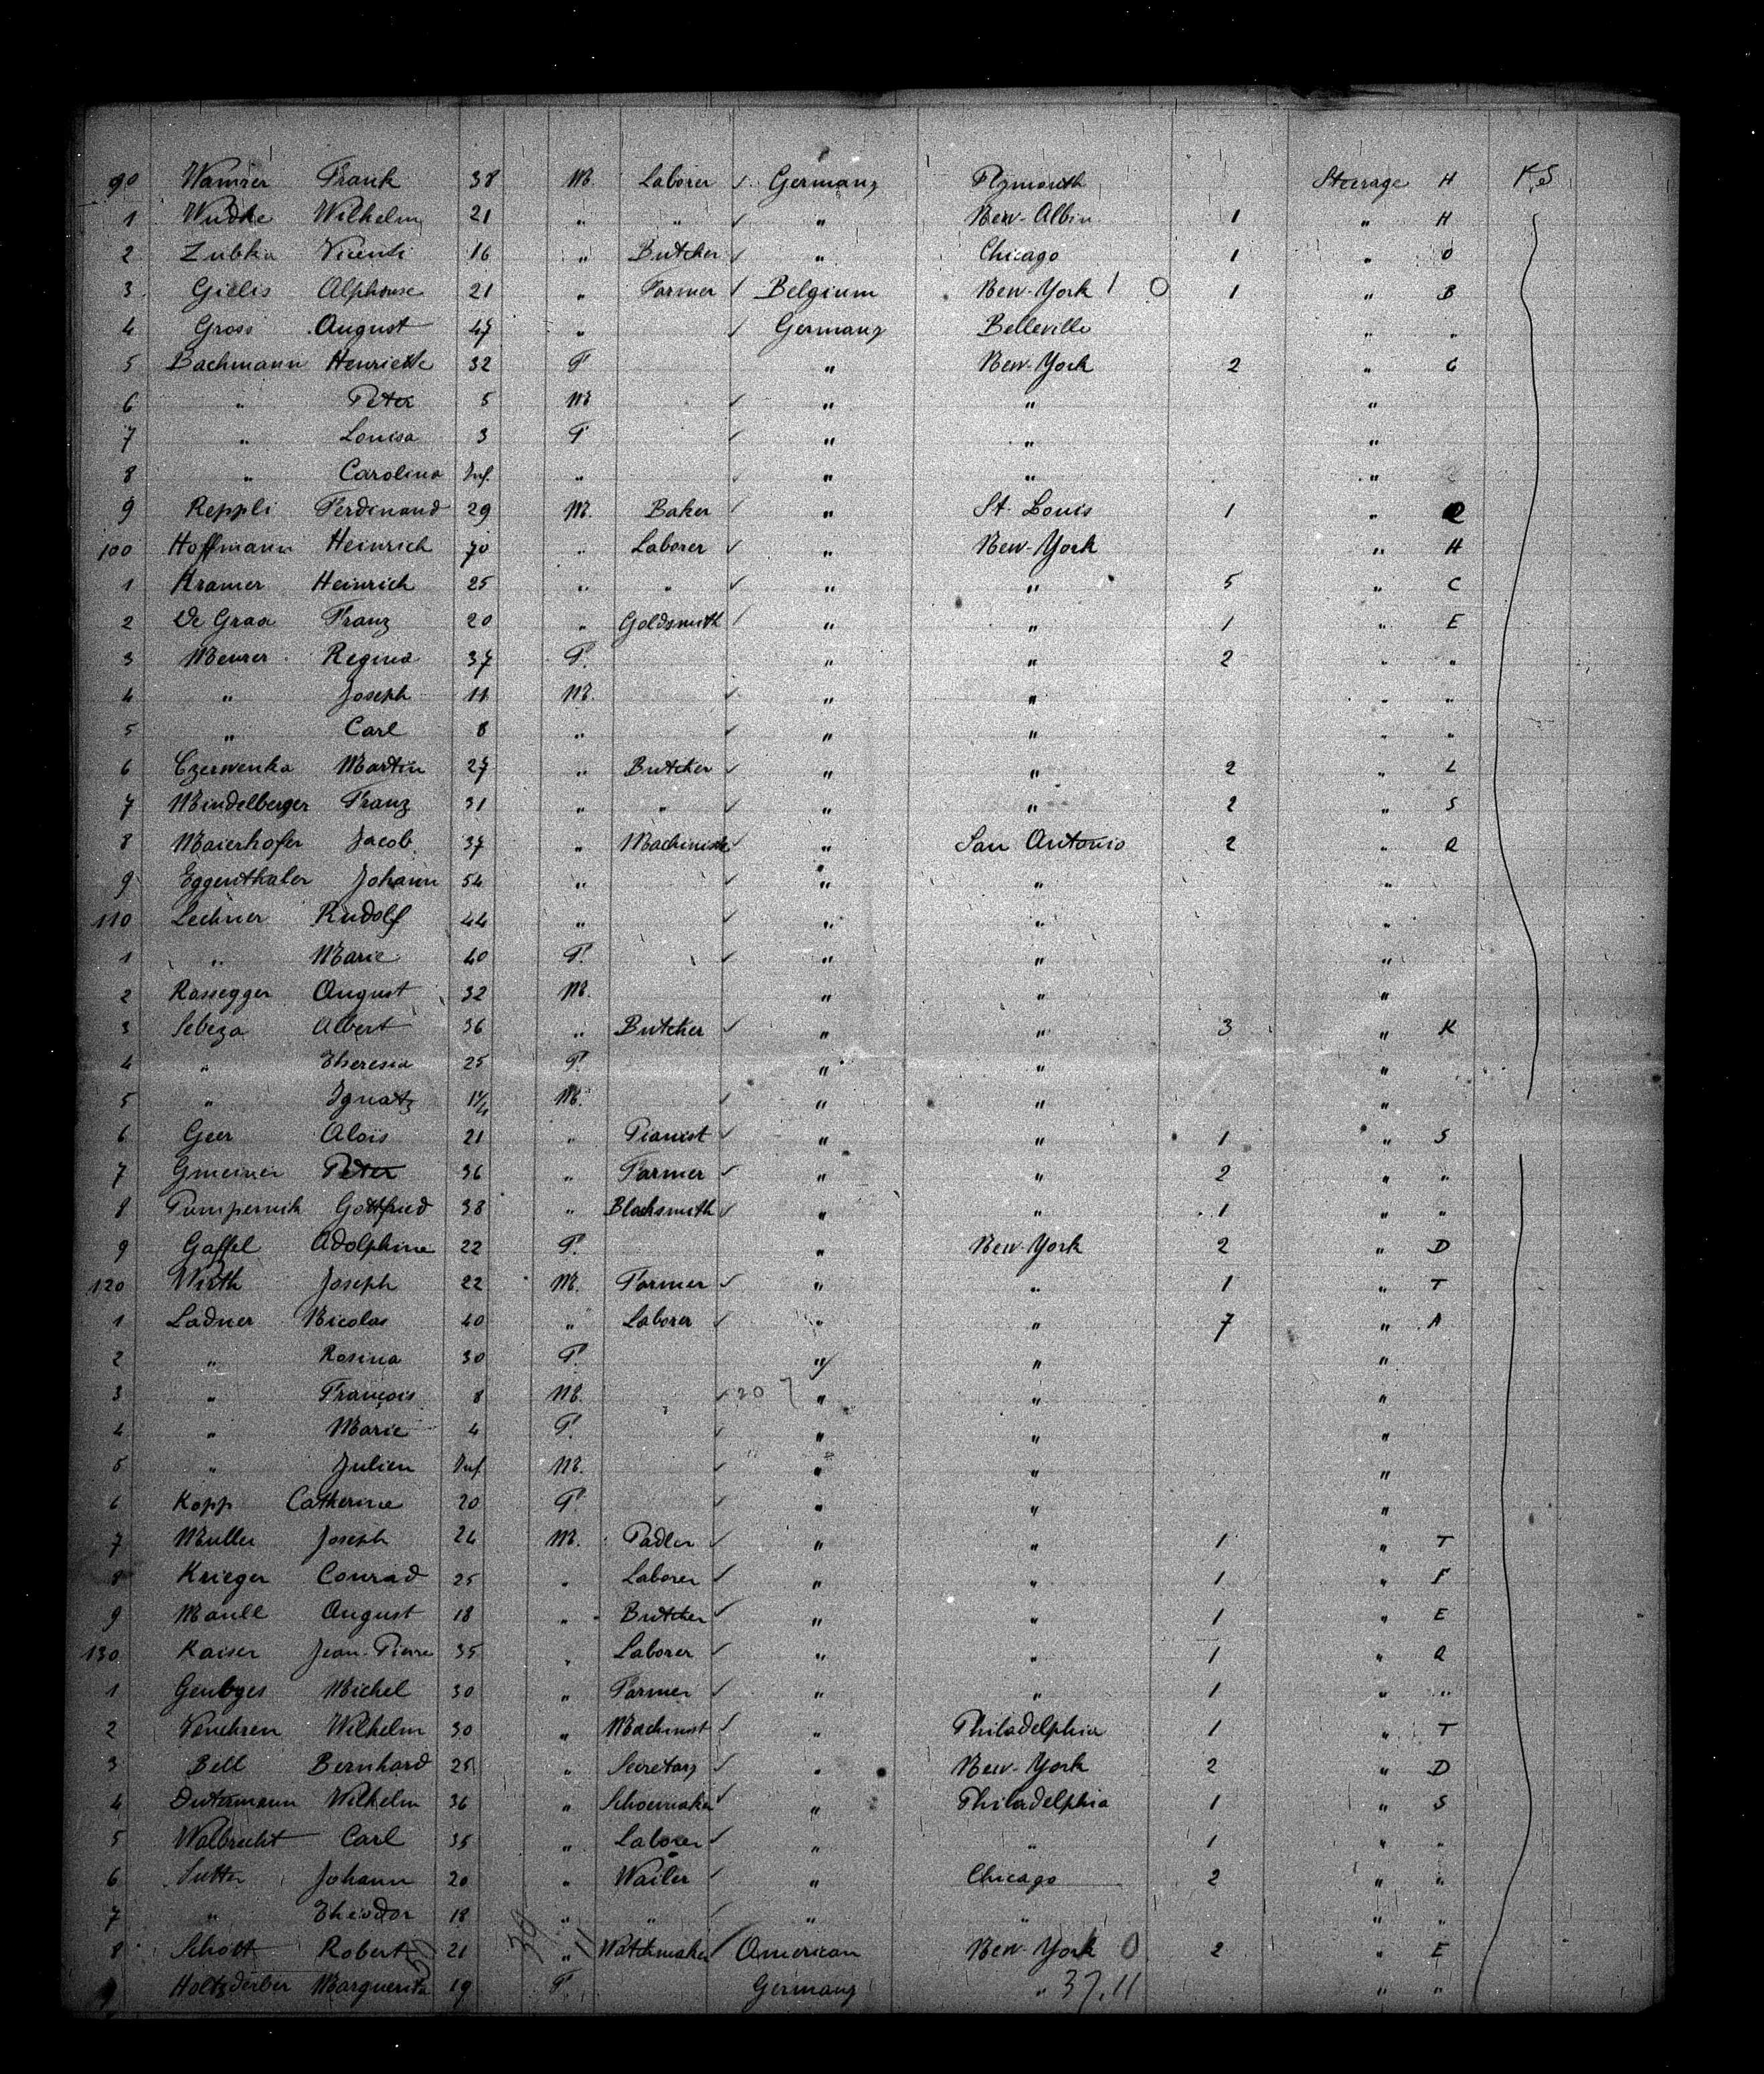 90 Wamser Frank 38 M. Laborer ✓ Germany Plymouth Steerage H
1 Wudke Wilhelm 21 " " ✓ " New-Albin 1 " H
2 Zubka Vicenti 16 " Butcher ✓ " Chicago 1 " O
3 Gielis Alphonse 21 " Farmer ✓ Belgium New-York 1 " B
4 Gross August 47 " ✓ Germany Belleville " "
5 Bachmann Henriette 32 F " New-York 2 " G
6 " Peter 5 M ✓ " " "
7 " Louisa 3 F ✓ " " "
8 " Carolina Inf. " ✓ " " "
9 Reppli Ferdinand 29 M. Baker ✓ " St. Louis 1 "
100 Hoffmann Heinrich 70 " Laborer ✓ " New-York " H
1 Kramer Heinrich 25 " " ✓ " " 5 " C
2 De Graa Franz 20 " Goldsmith ✓ " " 1 " E
3 Meurer Regina 37 F. " " 2 " "
4 " Joseph 11 M. ✓ " " " "
5 " Carl 8 " ✓ " " " "
6 Czerwenka Martin 27 " Butcher ✓ " " 2 " L
7 Mindelberger Franz 31 " " ✓ " " 2 " S
8 Maierhofer Jacob 37 " Machinist ✓ " San Antonio 2 " R
9 Eggenthaler Johann 54 " ✓ " " "
110 Lechner Rudolf 44 " ✓ " " "
1 " Marie 40 F. ✓ " " "
2 Rossegger August 32 M. " " "
3 Sebeza Albert 36 " Butcher ✓ " " 3 " K
4 " Theresia 25 F. " " "
5 " Ignatz M. ✓ " " "
6 Geer Alois 21 " Pianist ✓ " " 1 " S
7 Gmeiner Peter 36 " Farmer ✓ " " 2 " "
8 Pumpernik Gottfried 38 " Blacksmith ✓ " " 1 " "
9 Gaffel Adolphine 22 F. " New-York 2 " D
120 Wirth Joseph 22 M. Farmer ✓ " " 1 " T
1 Ladner Nicolas 40 " Laborer ✓ " " 7 " A
2 " Rosina 30 F. " " "
3 " François 8 M. ✓ 20 " " "
4 " Marie 4 F. ✓ " " "
5 " Julien Inf M. ✓ " " "
6 Kopp Catherine 20 F. ✓ " " "
7 Muller Joseph 24 M. Padler ✓ " " 1 " T
8 Krieger Conrad 25 " Laborer ✓ " " 1 " F
9 Maull August 18 " Butcher ✓ " " 1 " E
130 Kaiser Jean-Pierre 35 " Laborer ✓ " " 1 " R
1 Genbyes Michel 30 " Farmer ✓ " " 1 " "
2 Venehren Wilhelm 30 " Machinist ✓ " Philadelphia 1 " T
3 Bell Bernhard 25 " Secretary ✓ " New-York 2 " D
4 Dutermann Wilhelm 36 " Schoemaker ✓ " Philadelphia 1 " S
5 Walbrecht Carl 35 " Laborer ✓ " " 1 " "
6 Sutter Johann 20 " Wailer ✓ " Chicago 2 " "
7 " Theodor 18 " " ✓ " " " "
8 Schott Robert 21 " Watchmaker American New-York 0 2 " E
9 Holtzderber Marguerita 19 F. Germany " 37.11 " "